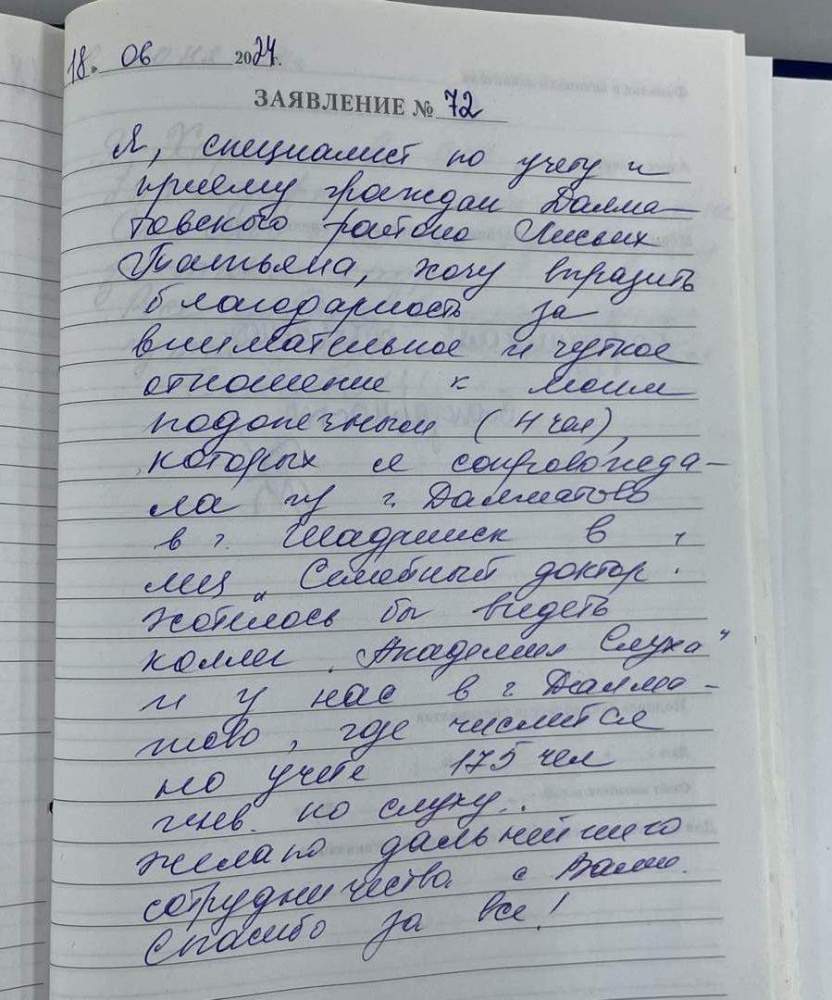 18. 06 2024г.
ЗАЯВЛЕНИЕ № 72
Я, специалист по учету и
приёму граждан Далма-
товского района Лисьих
Татьяна, хочу выразить
благодарность за
внимательное и чуткое
отношение к моим
подопечным (4 чел),
которых я сопровожда-
ла из г. Далматово
в г. Шадринск в
мц "Семейный доктор".
Хотелось бы видеть
коллег "Академия Слуха"
и у нас в г. Далма-
тово, где числится
на учете 175 чел
инв. по слуху.
Желаю дальнейшего
сотрудничества с Вами.
Спасибо за все!